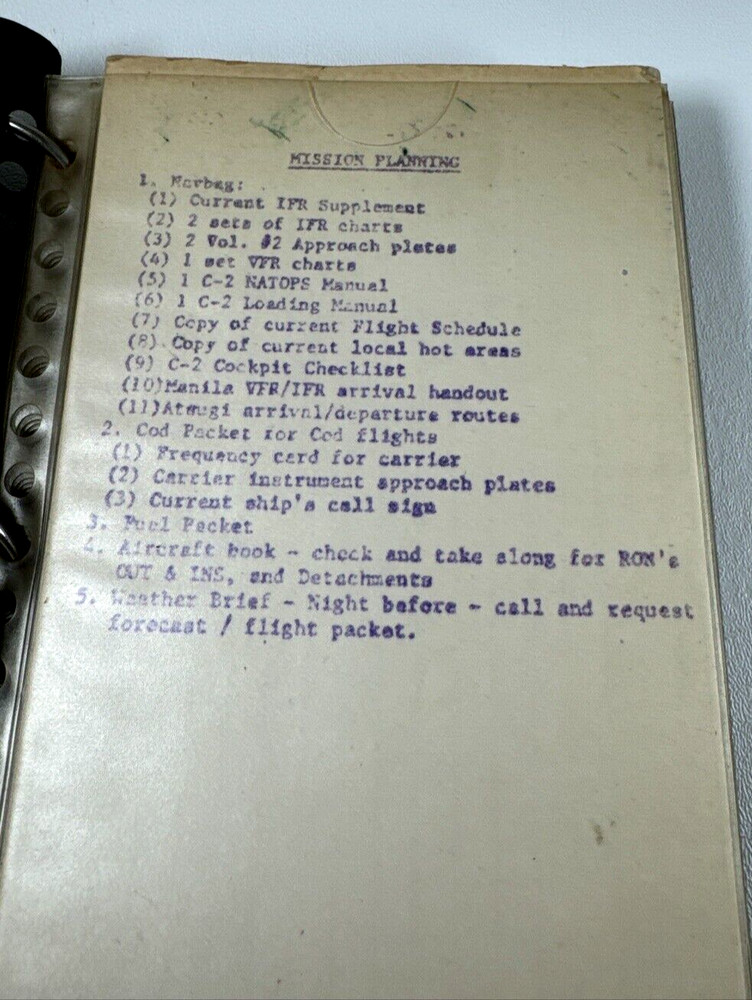 MISSION PLANNING
1. Navbag:
(1) Current IFR Supplement
(2) 2 sets of IFR charts
(3) 2 Vol. #2 Approach plates
(4) 1 set VFR charts
(5) 1 C-2 NATOPS Manual
(6) 1 C-2 Loading Manual
(7) Copy of current Flight Schedule
(8) Copy of current local hot areas
(9) C-2 Cockpit Checklist
(10)Manila VFR/IFR arrival handout
(11)Atsugi arrival/departure routes
2. Cod Packet for Cod flights
(1) Frequency card for carrier
(2) Carrier instrument approach plates
(3) Current ship's call sign
3. Fuel Packet
4. Aircraft book - check and take along for RON's
OUT & INS, and Detachments
5. Weather Brief - Night before - call and request
forecast / flight packet.